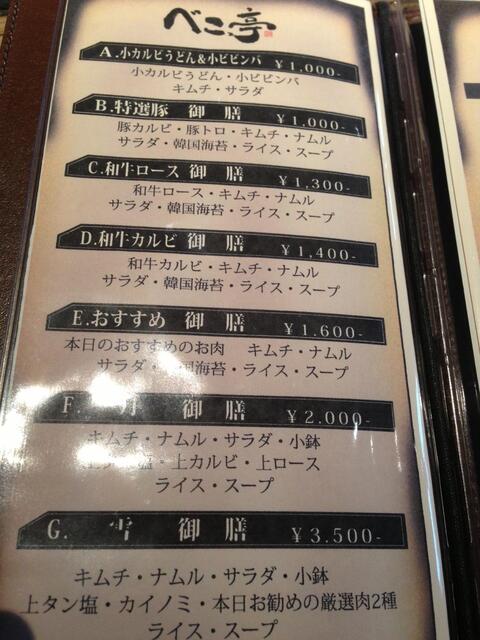 べこ亭
A.小カルビうどん&小ビビンバ ¥1,000-
小カルビうどん・小ビビンバ
キムチ・サラダ
B.特選豚 御膳 ¥1,000-
豚カルビ・豚トロ・キムチ・ナムル
サラダ・韓国海苔・ライス・スープ
C.和牛ロース 御膳 ¥1,300-
和牛ロース・キムチ・ナムル
サラダ・韓国海苔・ライス・スープ
D.和牛カルビ 御膳 ¥1,400-
和牛カルビ・キムチ・ナムル
サラダ・韓国海苔・ライス・スープ
E.おすすめ 御膳 ¥1,600-
本日のおすすめのお肉 キムチ・ナムル
サラダ・韓国海苔・ライス・スープ
F. 月 御膳 ¥2,000-
キムチ・ナムル・サラダ・小鉢
塩・上カルビ・上ロース
ライス・スープ
G. 雪 御膳 ¥3,500-
キムチ・ナムル・サラダ・小鉢
上タン塩・カイノミ・本日お勧めの厳選肉2種
ライス・スープ